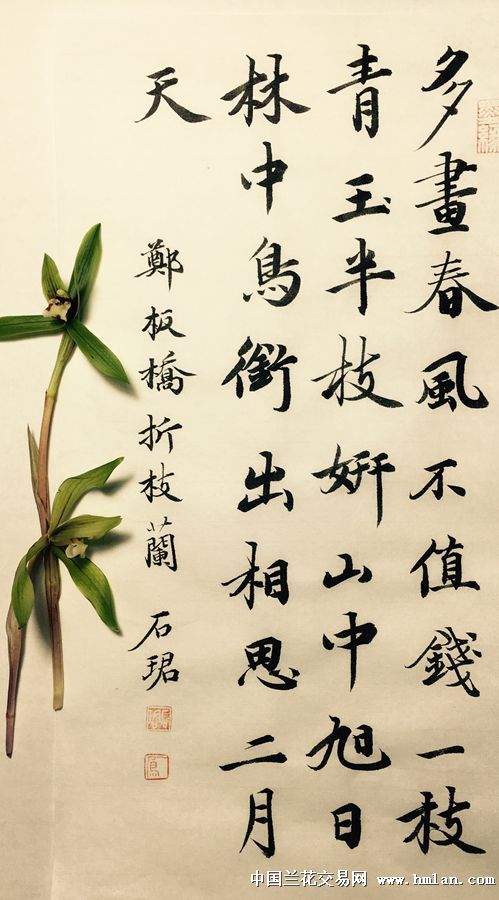 多畫春風不值錢一枝
青玉半枝妍山中旭日
林中鳥銜出相思二月
天
鄭板橋折枝蘭 石珺
中国兰花交易网 www.hmlan.com